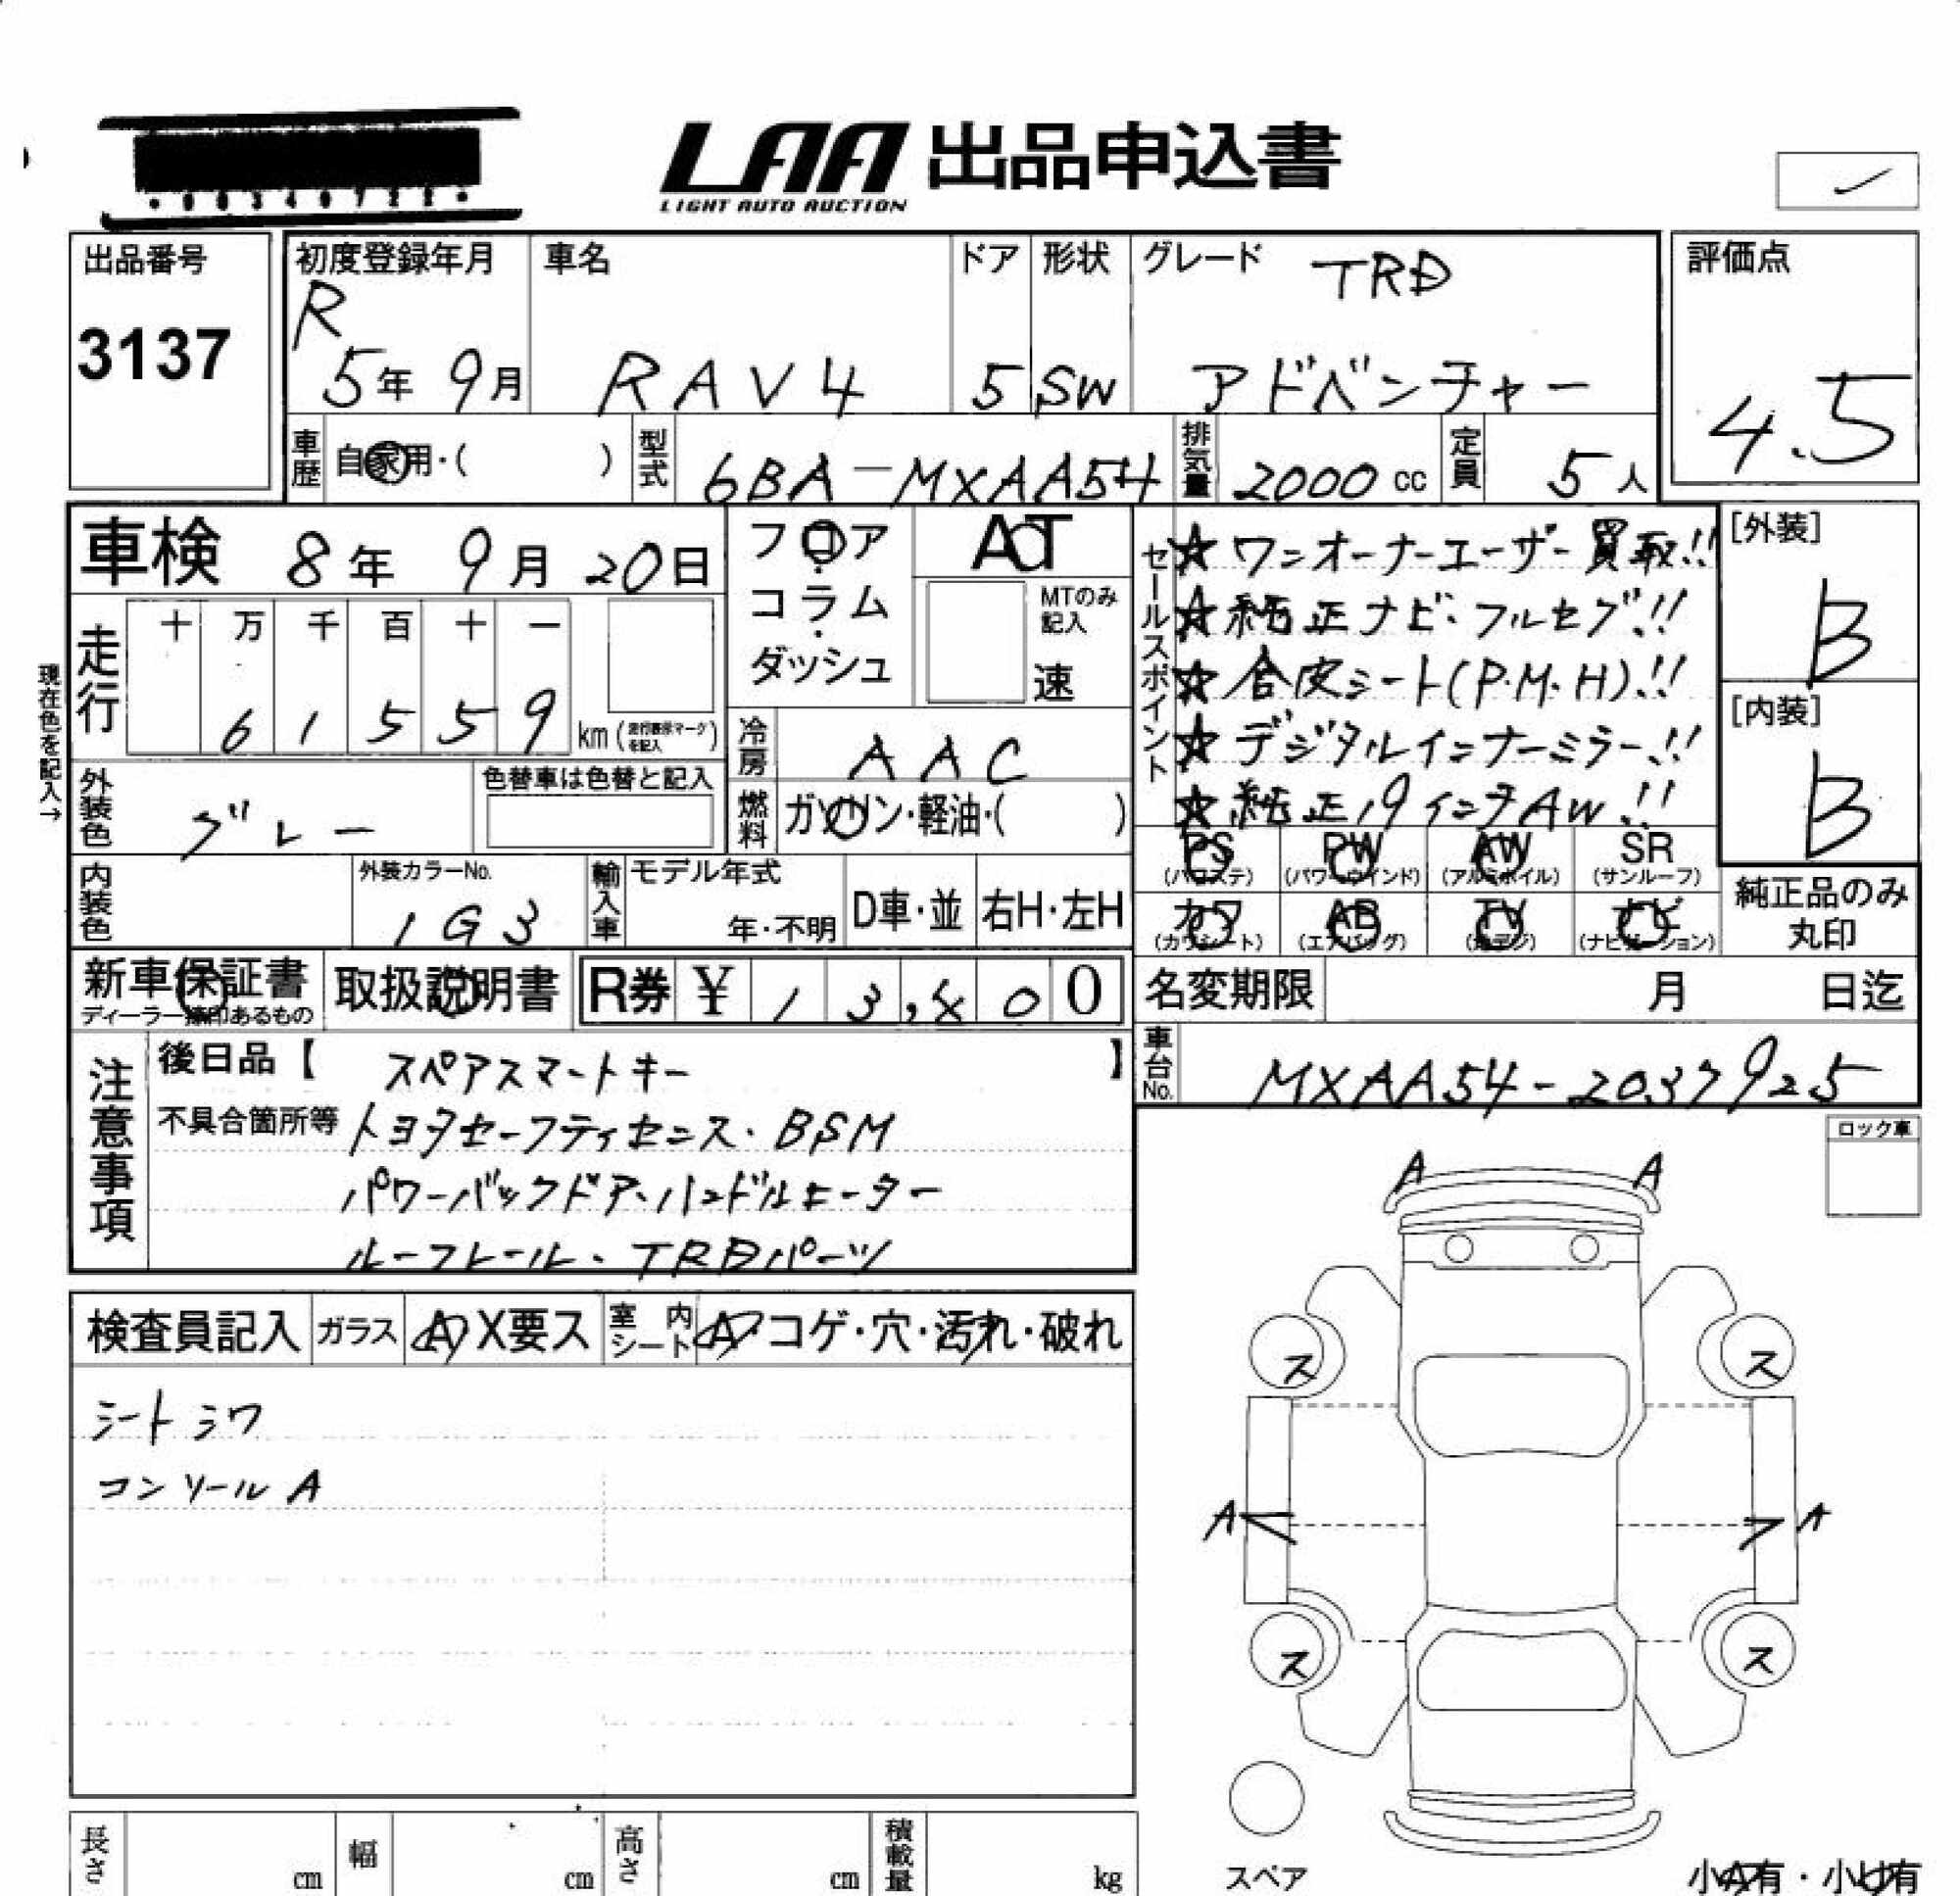 LAA 出品申込書
LIGHT AUTO AUCTION
出品番号
3137
初度登録年月
R
5年 9月
車名
RAV4
ドア
5
形状
SW
グレード TRD
アドベンチャー
評価点
4.5
車歴 自家用・( )
型式 6BA-MXAA54
排気量 2000 cc
定員 5人
車検 8年 9月 20日
フロア
・
コラム
・
ダッシュ
AT
MTのみ
記入
速
現在色を記入→
走行
十 万 千 百 十 一
6 1 5 5 9 km
冷房 AAC
燃料 ガソリン・軽油・( )
外装色 グレー
色替車は色替と記入
内装色
外装カラーNo.
1G3
輸入車
モデル年式
年・不明
D車・並
右H・左H
セールスポイント
☆ワンオーナーユーザー買取!!
☆純正ナビ・フルセグ!!
☆合皮シート(P.M.H)!!
☆デジタルインナーミラー!!
☆純正19インチAW!!
[外装]
B
[内装]
B
PS PW AW SR
(パワステ) (パワーウインド) (アルミホイル) (サンルーフ)
カワ AB TV ナビ
(カワシート) (エアバッグ) (地デジ) (ナビゲーション)
純正品のみ
丸印
新車保証書
取扱説明書
R券 ¥
名変期限 月 日迄
車台No. MXAA54-2037925
注意事項
後日品【 スペアスマートキー 】
不具合箇所等 トヨタセーフティセンス・BSM
パワーバックドア・ハンドルヒーター
ルーフレール・TRDパーツ
ロック車
A A
検査員記入 ガラス A X要ス 室内シート A・コゲ・穴・汚れ・破れ
シートシワ
コンソールA
ス ス
A A
ス ス
スペア
長さ cm 幅 cm 高さ cm 積載量 kg
小A有・小U有